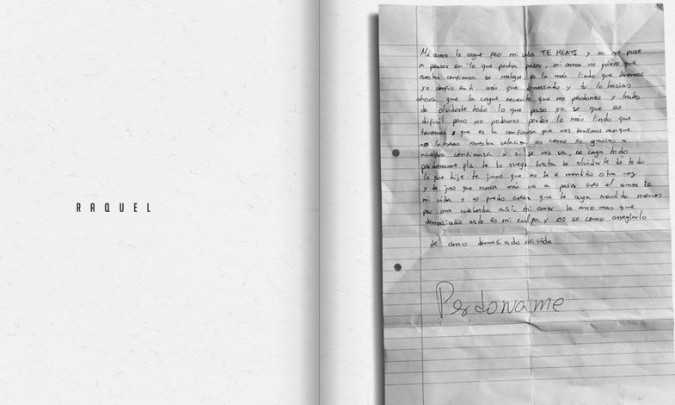 RAQUEL
amor la cague pero mi vida TE MENTI y no me puse
a pensar en lo que podia pasar, mi amor no quiero que
nuestra confianza se es lo mas lindo que tenemos
yo confio en ti mas que demasiado y tu lo hacias
ahora que la cague necesito que me perdones y trates
de olvidarte todo lo que paso yo se que es
dificil pero no podemos perder lo mas lindo que
tenemos, que es la confianza que nos tenemos aunque
no lo creas nuestra relacion es como es gracias a
nuestra confianza y si se nos va, se caga todo
perdoname pls te lo ruego trata de olvidarte de todo
lo que hije te juro que no te e mentido otra vez
y te juro que nunca mas va a pasar eres el amor de
mi vida y no puedo creer que te aya mentido menos
por una webada asi. mi amor te amo mas que
demasiado esto es mi culpa y no se como arreglarlo
te amo demasiado mi vida
Perdoname